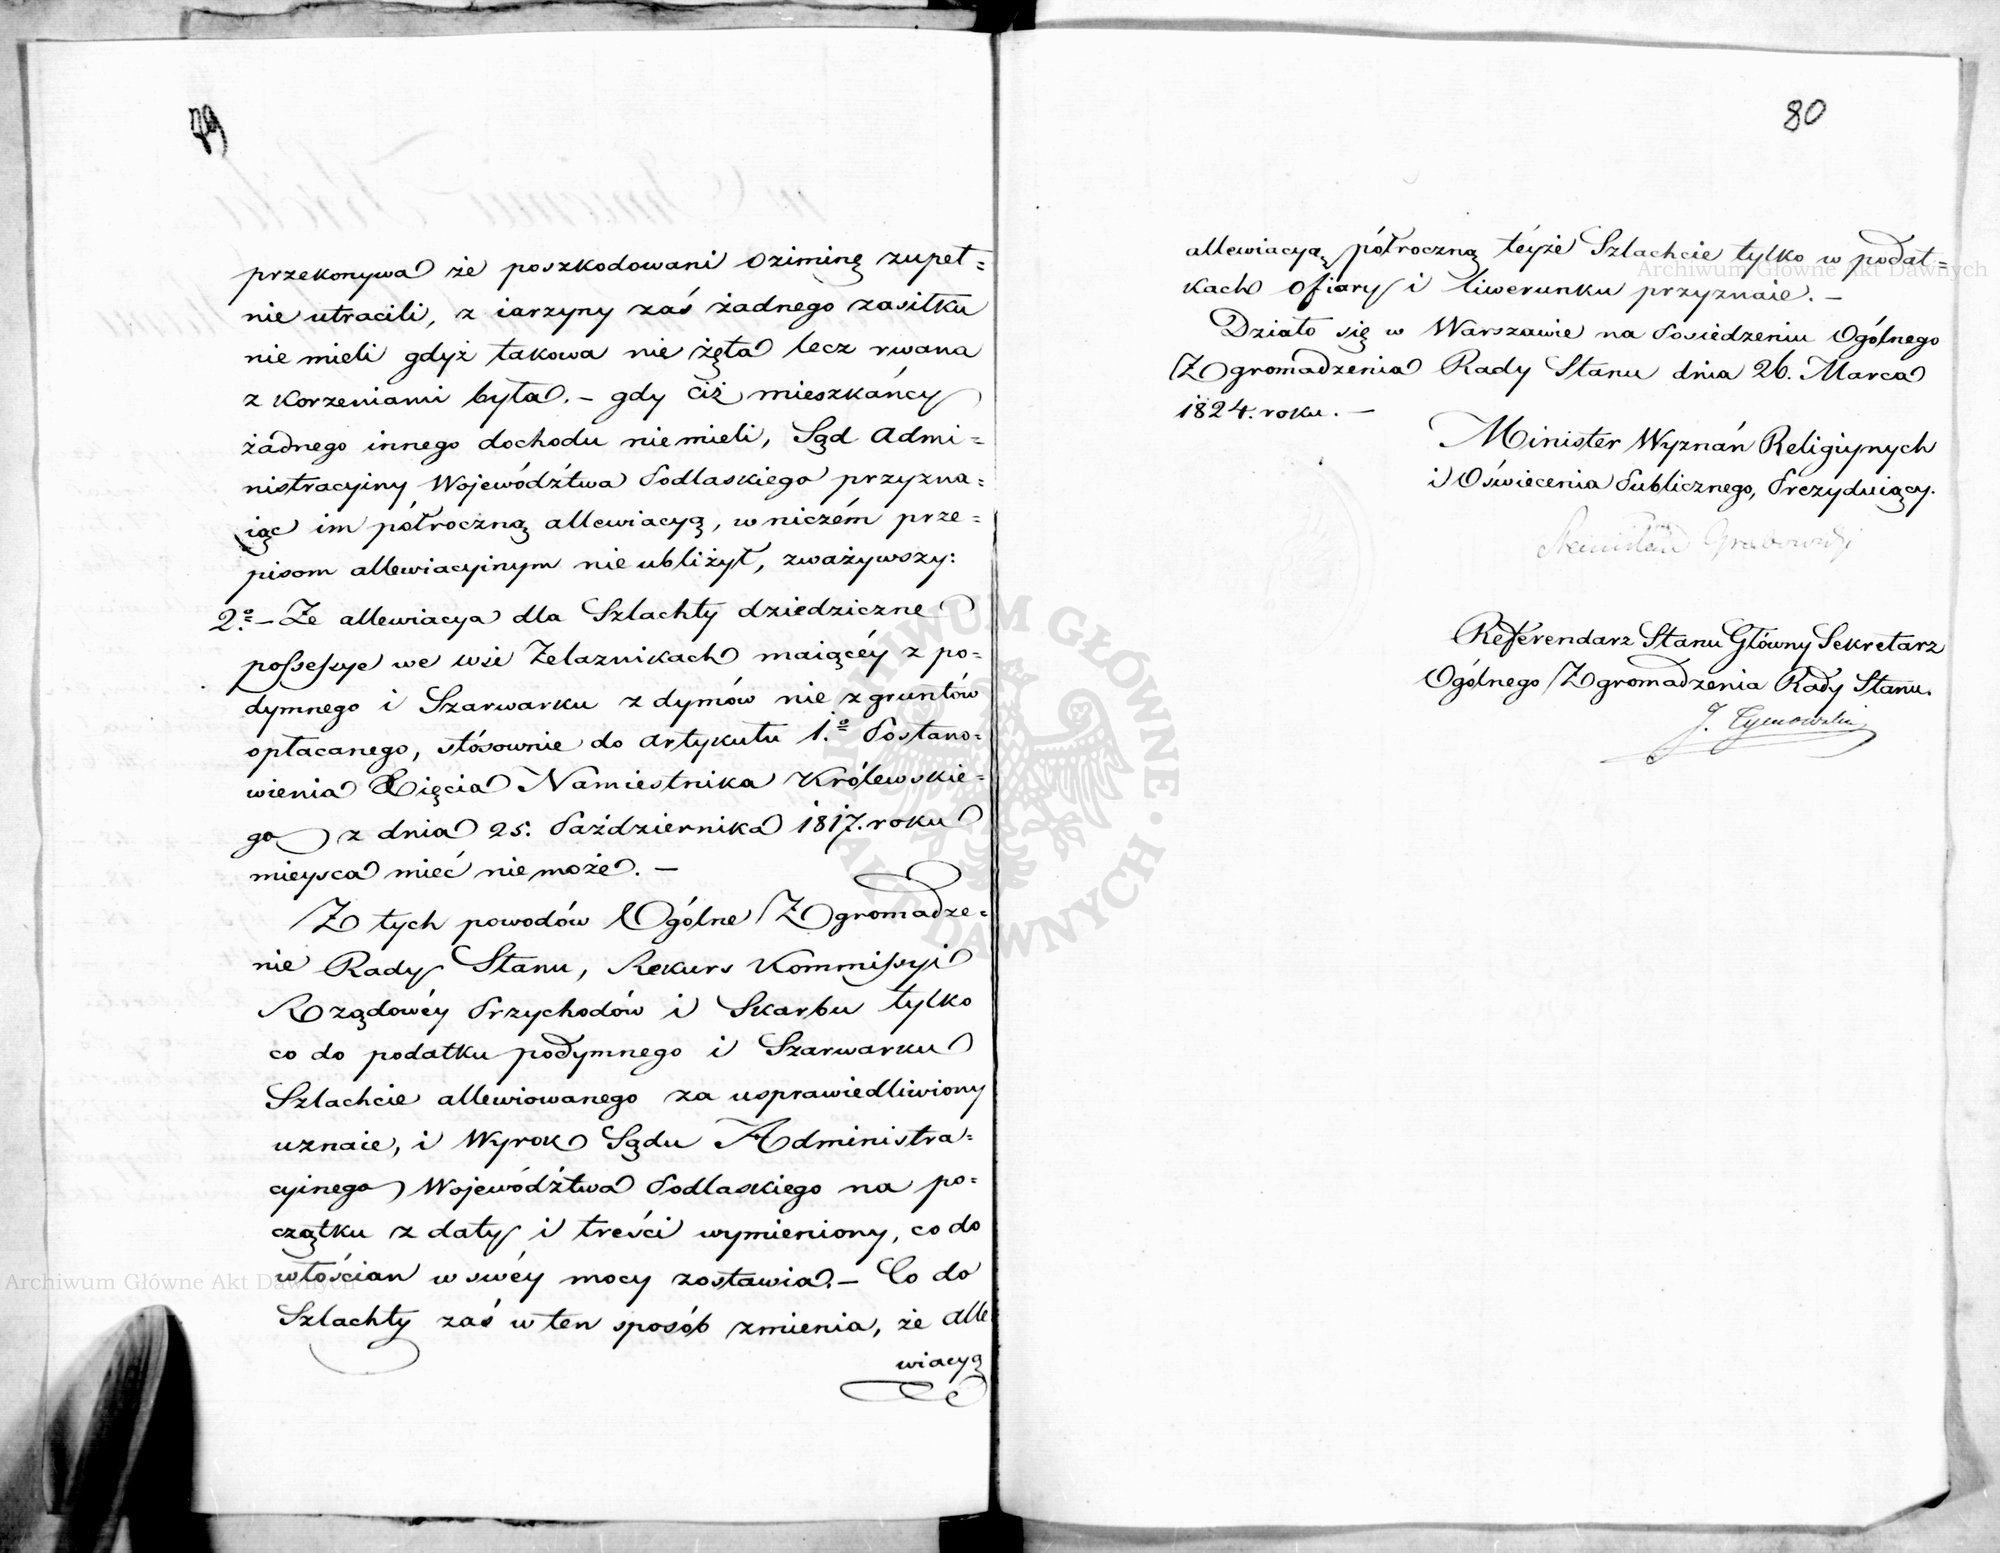 79
przekonywa że poszkodowani oziminę zupeł=
nie utracili, z iarzyny zaś żadnego zasiłku
nie mieli gdyż takowa nie żęta lecz rwana
z korzeniami była. – gdy ciż mieszkańcy
żadnego innego dochodu nie mieli, Sąd Admi=
nistracyiny Województwa Podlaskiego przyzna=
iąc im półroczną allewiacyą, w niczém prze=
pisom allewiacyinym nie ubliżył, zważywszy:
2º. – Że allewiacya dla Szlachty dziedziczne
possessye we wsi Żelaznikach maiącéy z po=
dymnego i Szarwarku z dymów nie z gruntów
opłacanego, stósownie do artykułu 1.º Postano=
wienia Xięcia Namiestnika Królewskie=
go z dnia 25. Października 1817. roku
mieysca mieć nie może. –
Z tych powodów Ogólne Zgromadze=
nie Rady Stanu, Rekurs Kommissyi
Rządowéy Przychodów i Skarbu tylko
co do podatku podymnego i Szarwarku
Szlachcie allewiowanego za usprawiedliwiony
uznaie, i Wyrok Sądu Administra=
cyinego Województwa Podlaskiego na po=
czątku z daty i treści wymieniony, co do
włościan w swéy mocy zostawia. – Co do
Szlachty zaś w ten sposób zmienia, że alle
wiacyą
80
allewiacyą półroczną téyże Szlachcie tylko w podat=
kach Ofiary i liwerunku przyznaie. –
Działo się w Warszawie na Posiedzeniu Ogólnego
Zgromadzenia Rady Stanu dnia 26. Marca
1824. roku. –
Minister Wyznań Religiynych
i Oświecenia Publicznego, Prezyduiący.
Stanisław Grabowski
Referendarz Stanu Główny Sekretarz
Ogólnego Zgromadzenia Rady Stanu.
J. Tymowski
Archiwum Główne Akt Dawnych
Archiwum Główne Akt Dawnych
ARCHIWUM GŁÓWNE AKT DAWNYCH